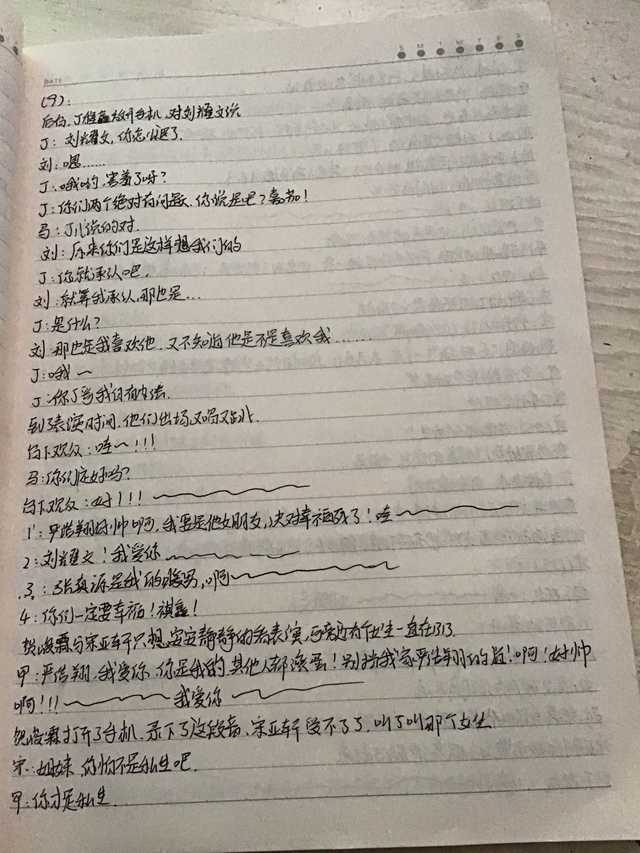 DATE
S M T W T F S
(9):
后台,丁程鑫打开手机,对刘耀文说
J:刘耀文,你怎么回了.
刘:嗯……
J:哦哟,害羞了呀?
J:你们两个绝对有问题,你说是吧?嘉祺!
马:J儿说的对.
刘:原来你们是这样想我们的
J:你就承认吧,
刘:就算我承认,那也是…
J:是什么?
刘:那也是我喜欢他,又不知道他是不是喜欢我……
J:哦~
J:你了当我没有办法.
到了表演时间,他们出场又唱又跳.
台下欢众:哇~!!!
马:你们还好吗?
台下欢众:好!!!
1:严浩翔好帅啊,我要是他女朋友,决对幸福死了!哇
2:刘耀文!我爱你
3:张真源是我的暖男,啊
4:你们一定要幸福!祺鑫!
贺峻霖与宋亚轩只想安安静静的看表演,旁边有个女生一直在叨叨
甲:严浩翔,我爱你,你是我的,其他人都滚蛋!别挡我家严浩翔的道!啊!好帅
啊!!! 我爱你
贺峻霖打开了手机,录下了这段音,宋亚轩受不了了,叫了叫那个女生
宋:姐妹,你怕不是私生吧.
甲:你才是私生.